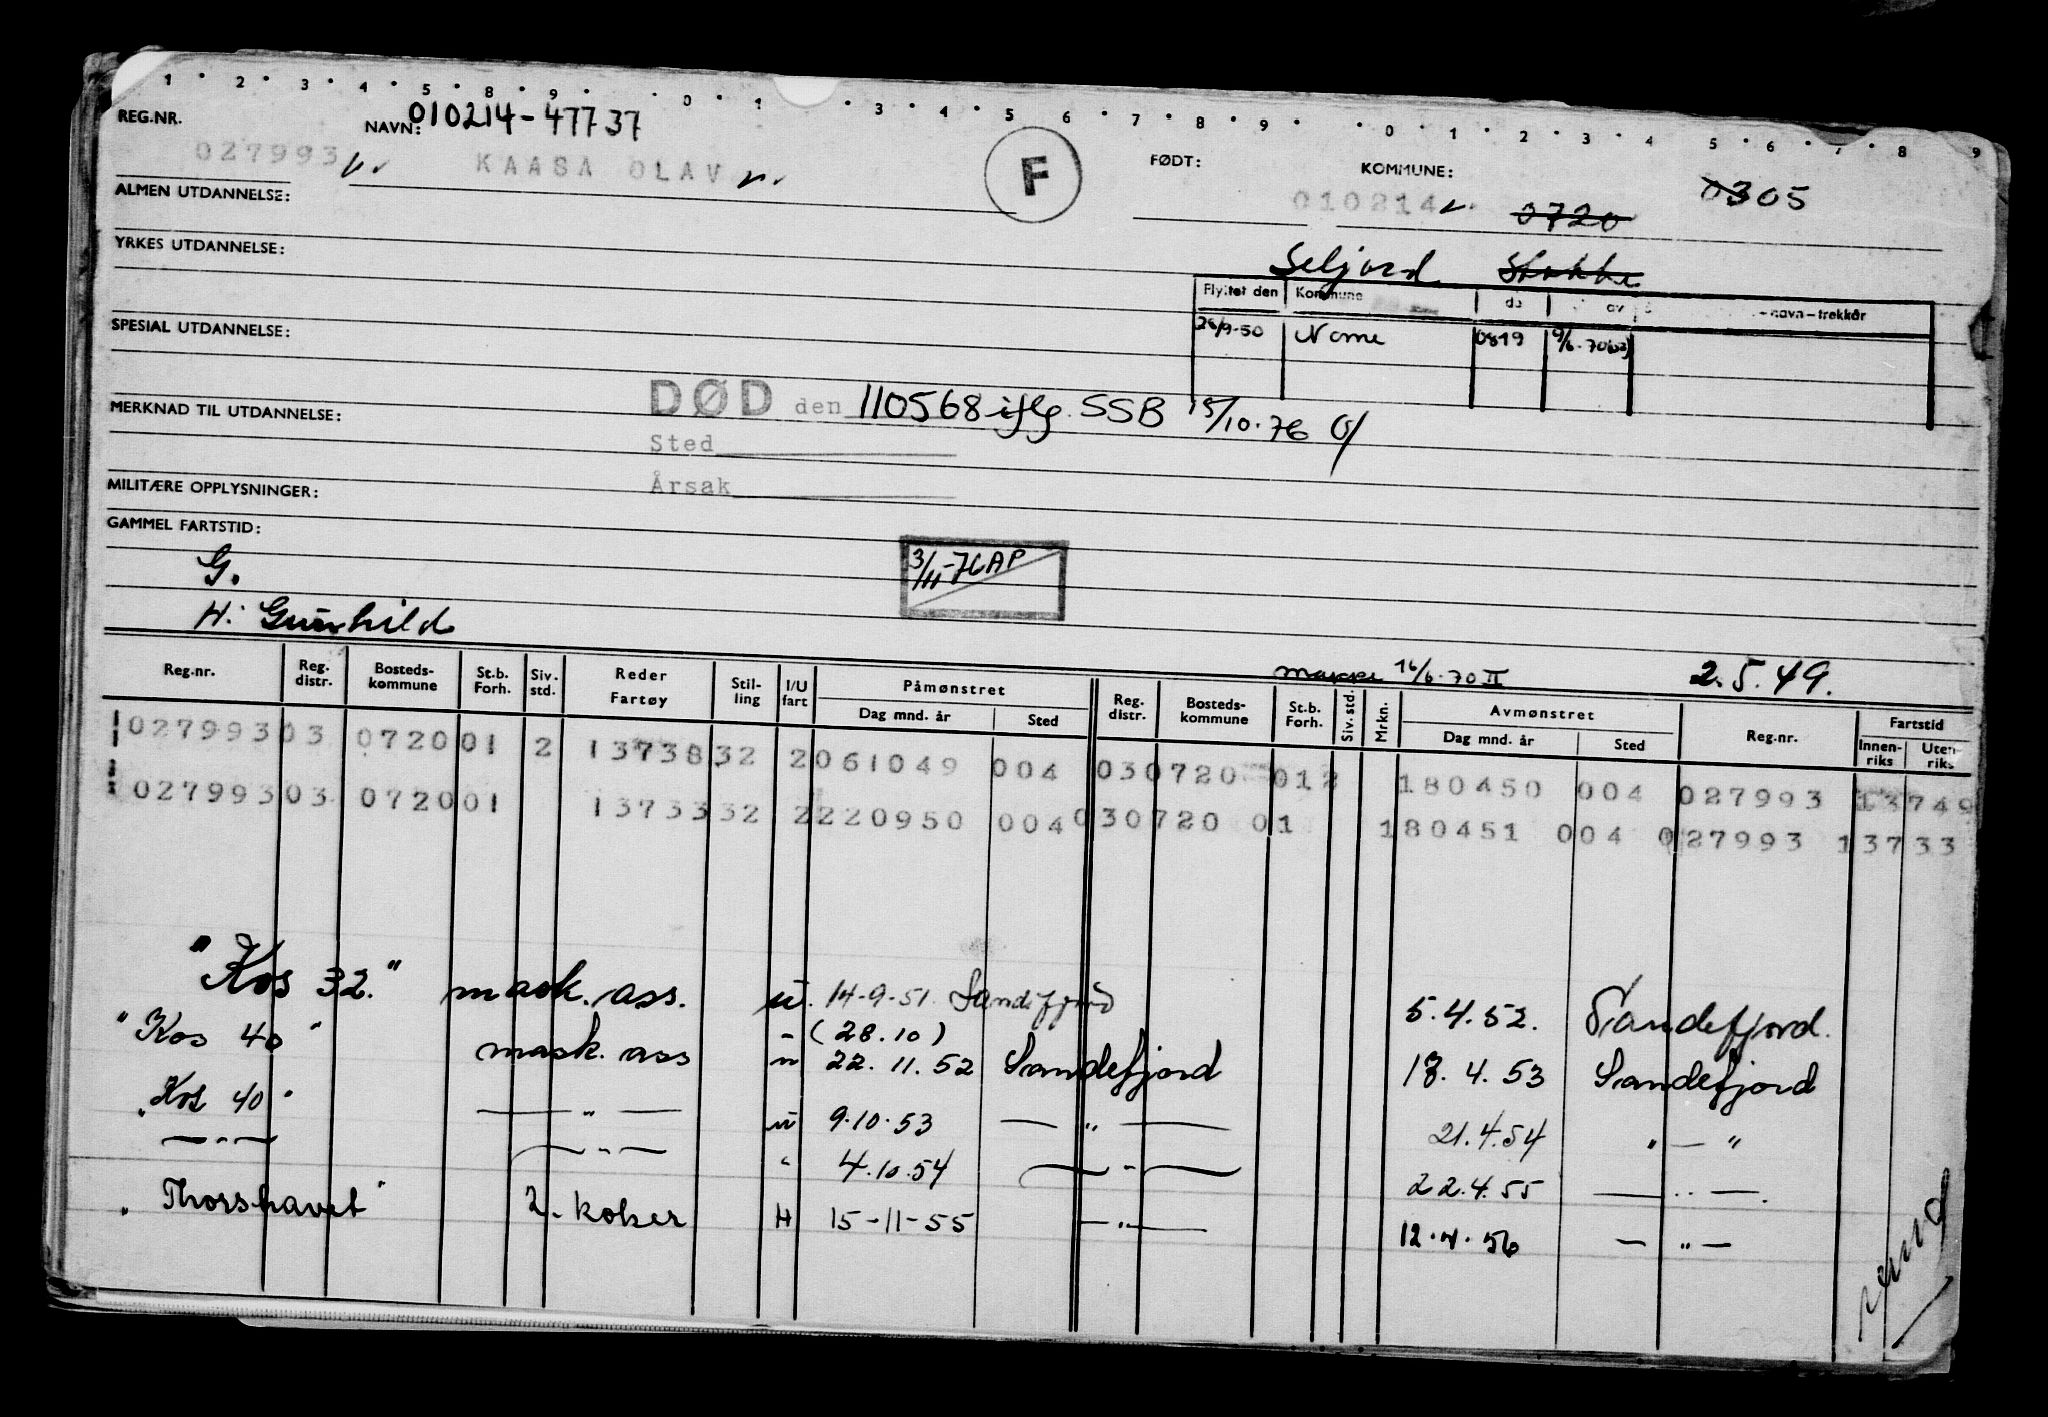 1 · 2 · 3 · 4 · 5 · 8 · 9 · · 0 · 1 · 3 · 4 · 5 · 6 · 7 · 8 · 9 · · 0 · 1 · 2 · 3 · 4 · 5 · 6 · 7 · 8 · 9
REG.NR. NAVN: 010214-47737 FØDT: KOMMUNE:
027993 KAASA OLAV F 010214 0720 0305
ALMEN UTDANNELSE:
Seljord Stokke
YRKES UTDANNELSE:
Flyttet den Kommune av -navn-trekkør
26/9-50 Nome 0819 9/6-70
SPESIAL UTDANNELSE:
DØD den 110568 iflg. SSB 15/10.76
MERKNAD TIL UTDANNELSE:
Sted
Årsak
MILITÆRE OPPLYSNINGER:
GAMMEL FARTSTID:
G. 3/11-76 AP
H: Gunhild
16/6.70 II 2.5.49.
Reg.nr. Reg. distr. Bosteds-kommune St.b. Forh. Siv. std. Reder Fartøy Stil-ling I/U fart Påmønstret Dag mnd. år Sted Reg. distr. Bosteds-kommune St.b. Forh. Siv. std. Mrkn. Avmønstret Dag mnd. år Sted Reg.nr. Fartstid Innen-riks Uten-riks
027993 03 0720 01 2 13738 32 2 061049 004 03 0720 012 180450 004 027993 13749
027993 03 0720 01 13733 32 2 220950 004 030720 01 180451 004 027993 13733
"Kos 32." mask. ass. u. 14-9-51. Sandefjord 5.4.52. Sandefjord.
"Kos 40" - (28.10)
mask. ass u 22.11.52 Sandefjord 18.4.53 Sandefjord
"Kos 40" — " — u 9.10.53 — " — 21.4.54 " — "
— " — — " — " 4.10.54 — " — 22.4.55 — " —.
"Thorshavet" 2. koker H 15-11-55 — " — 12.4.56 — " —